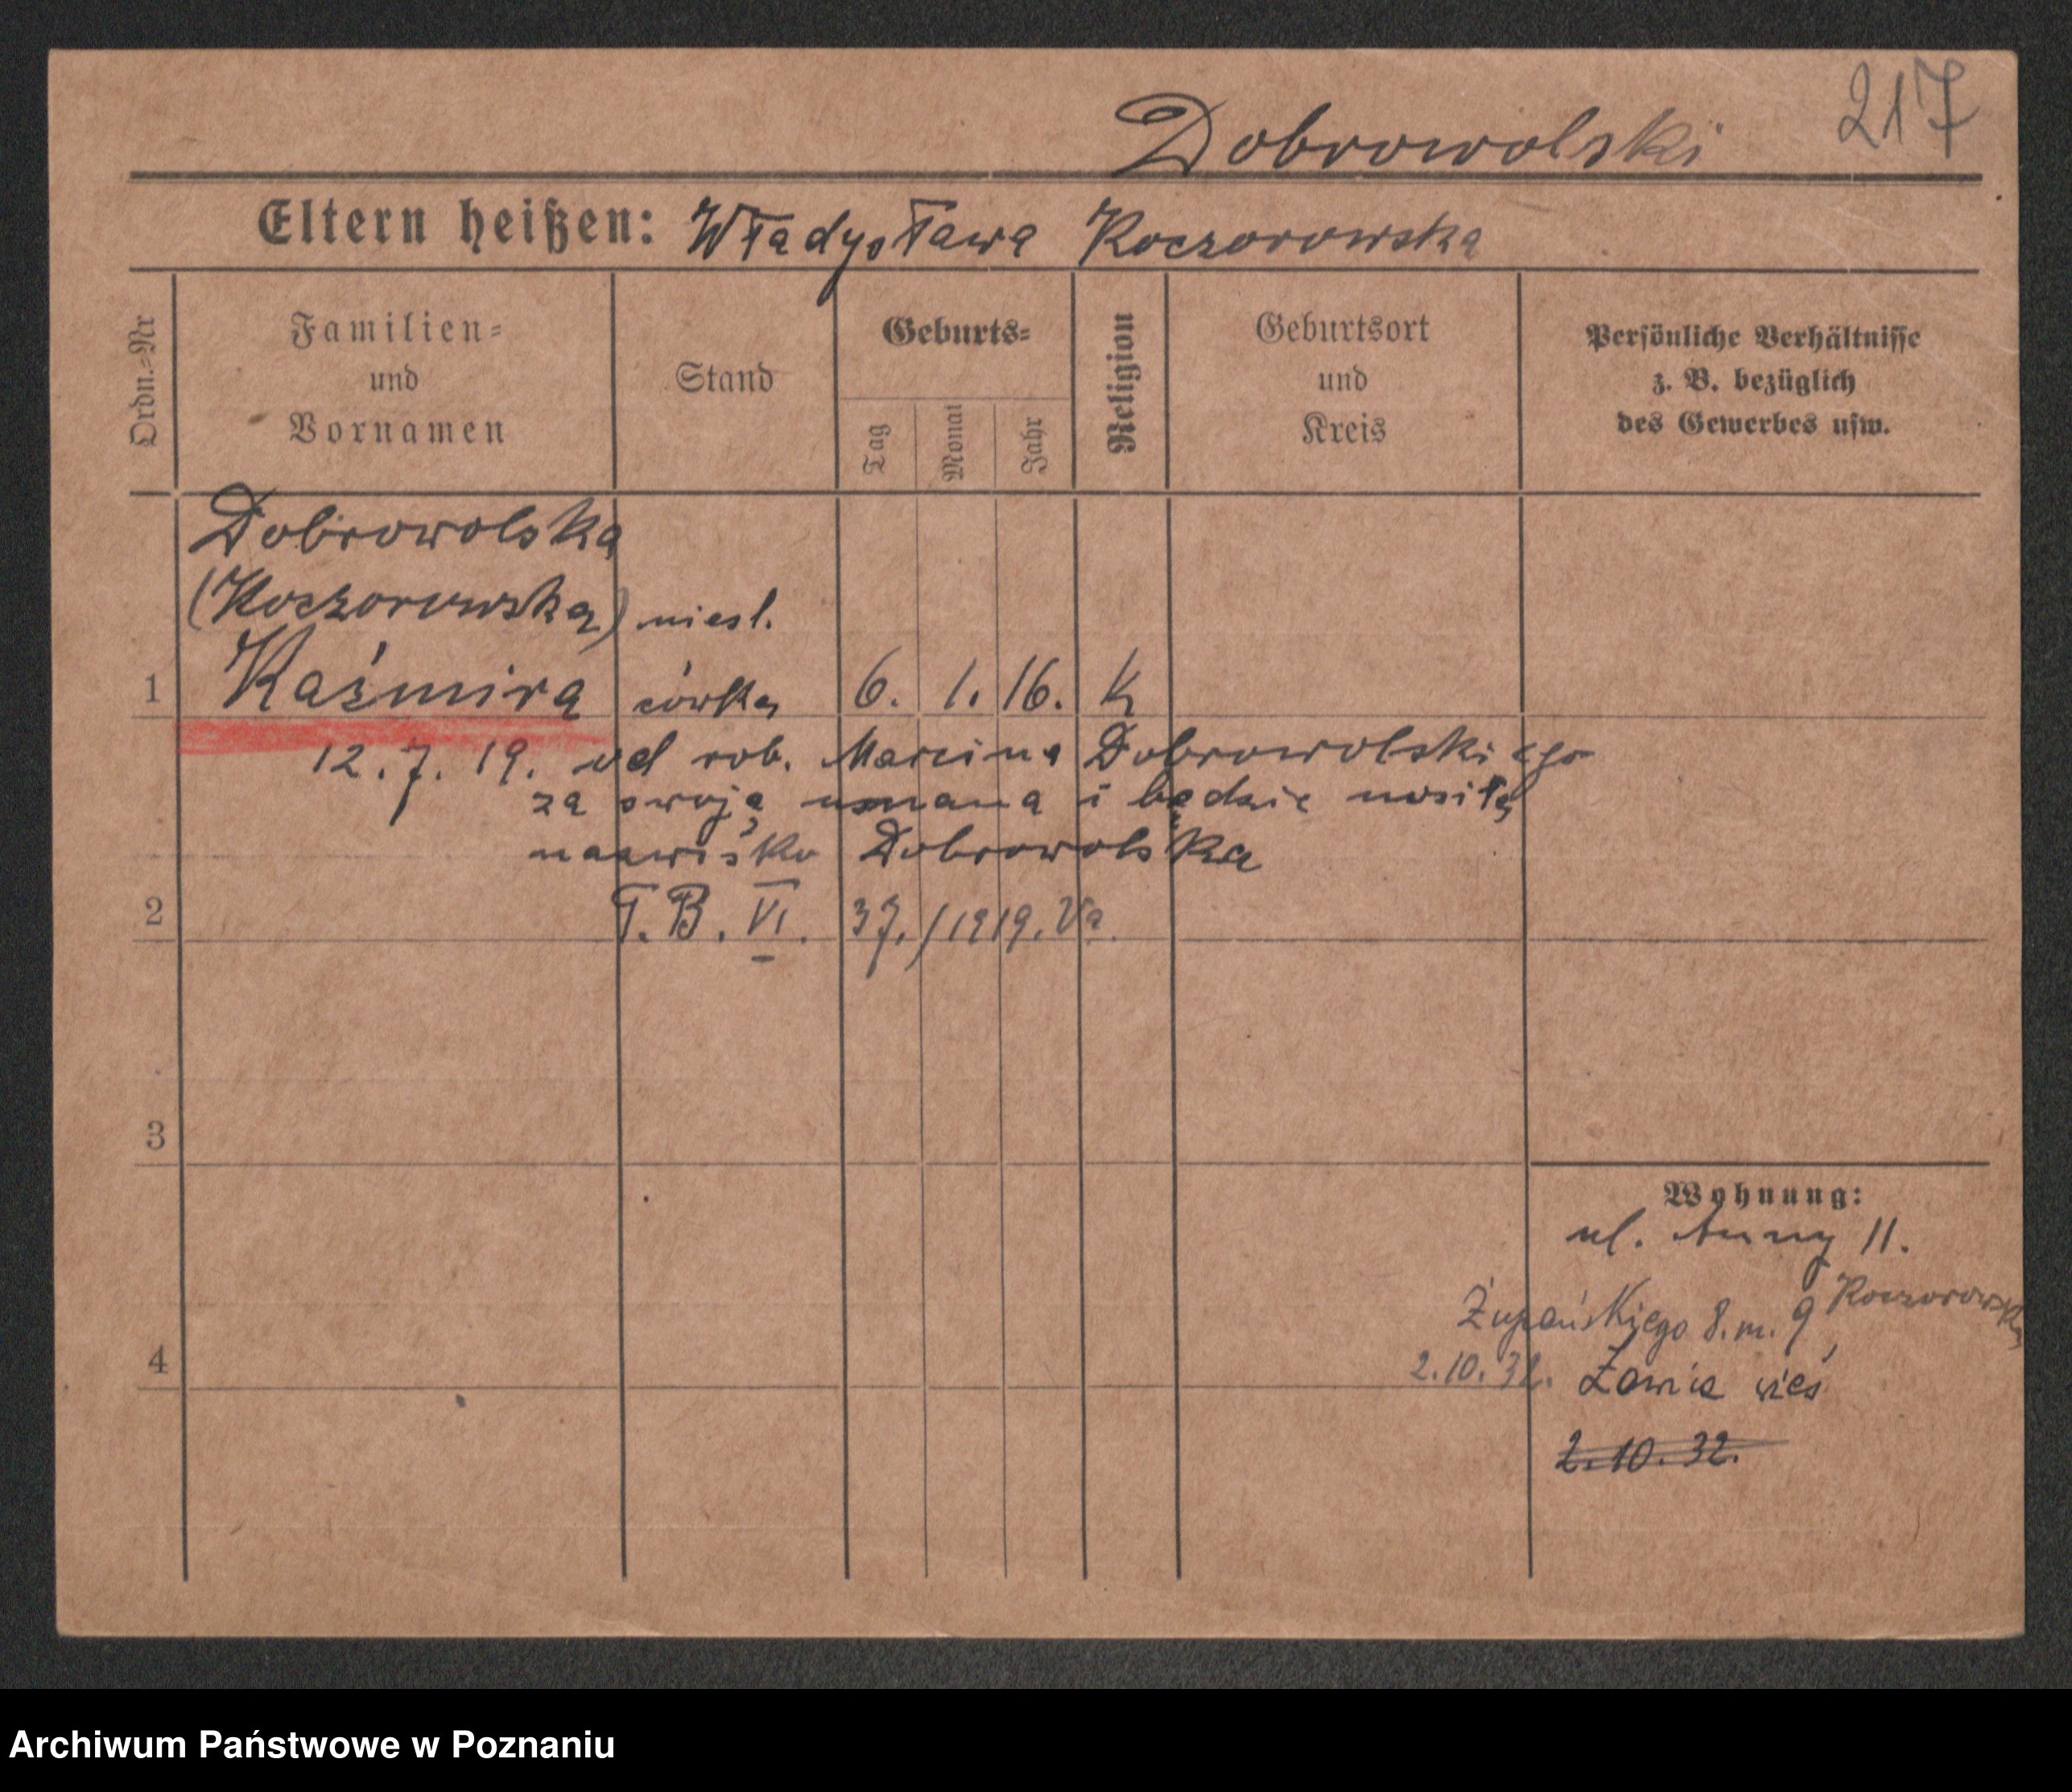 217
Dobrowolski
Eltern heißen: Władysława Koczorowska
Ordn.=Nr
Familien=
und
Vornamen
Stand
Geburts=
Tag
Monat
Jahr
Religion
Geburtsort
und
Kreis
Persönliche Verhältnisse
z. B. bezüglich
des Gewerbes usw.
Dobrowolska
(Koczorowska) niesl.
1 Kaźmira córka 6. 1. 16. K
12. 7. 19. od rob. Marcina Dobrowolskiego
za swoją uznana i będzie nosiła
nazwisko Dobrowolska
2 T. B. VI. 37./1919. Va.
3
Wohnung:
ul. Anny 11.
Żupańskiego 8. m. 9 Koczorowska
4
2.10.32. Żownia wieś
2.10.32.
Archiwum Państwowe w Poznaniu